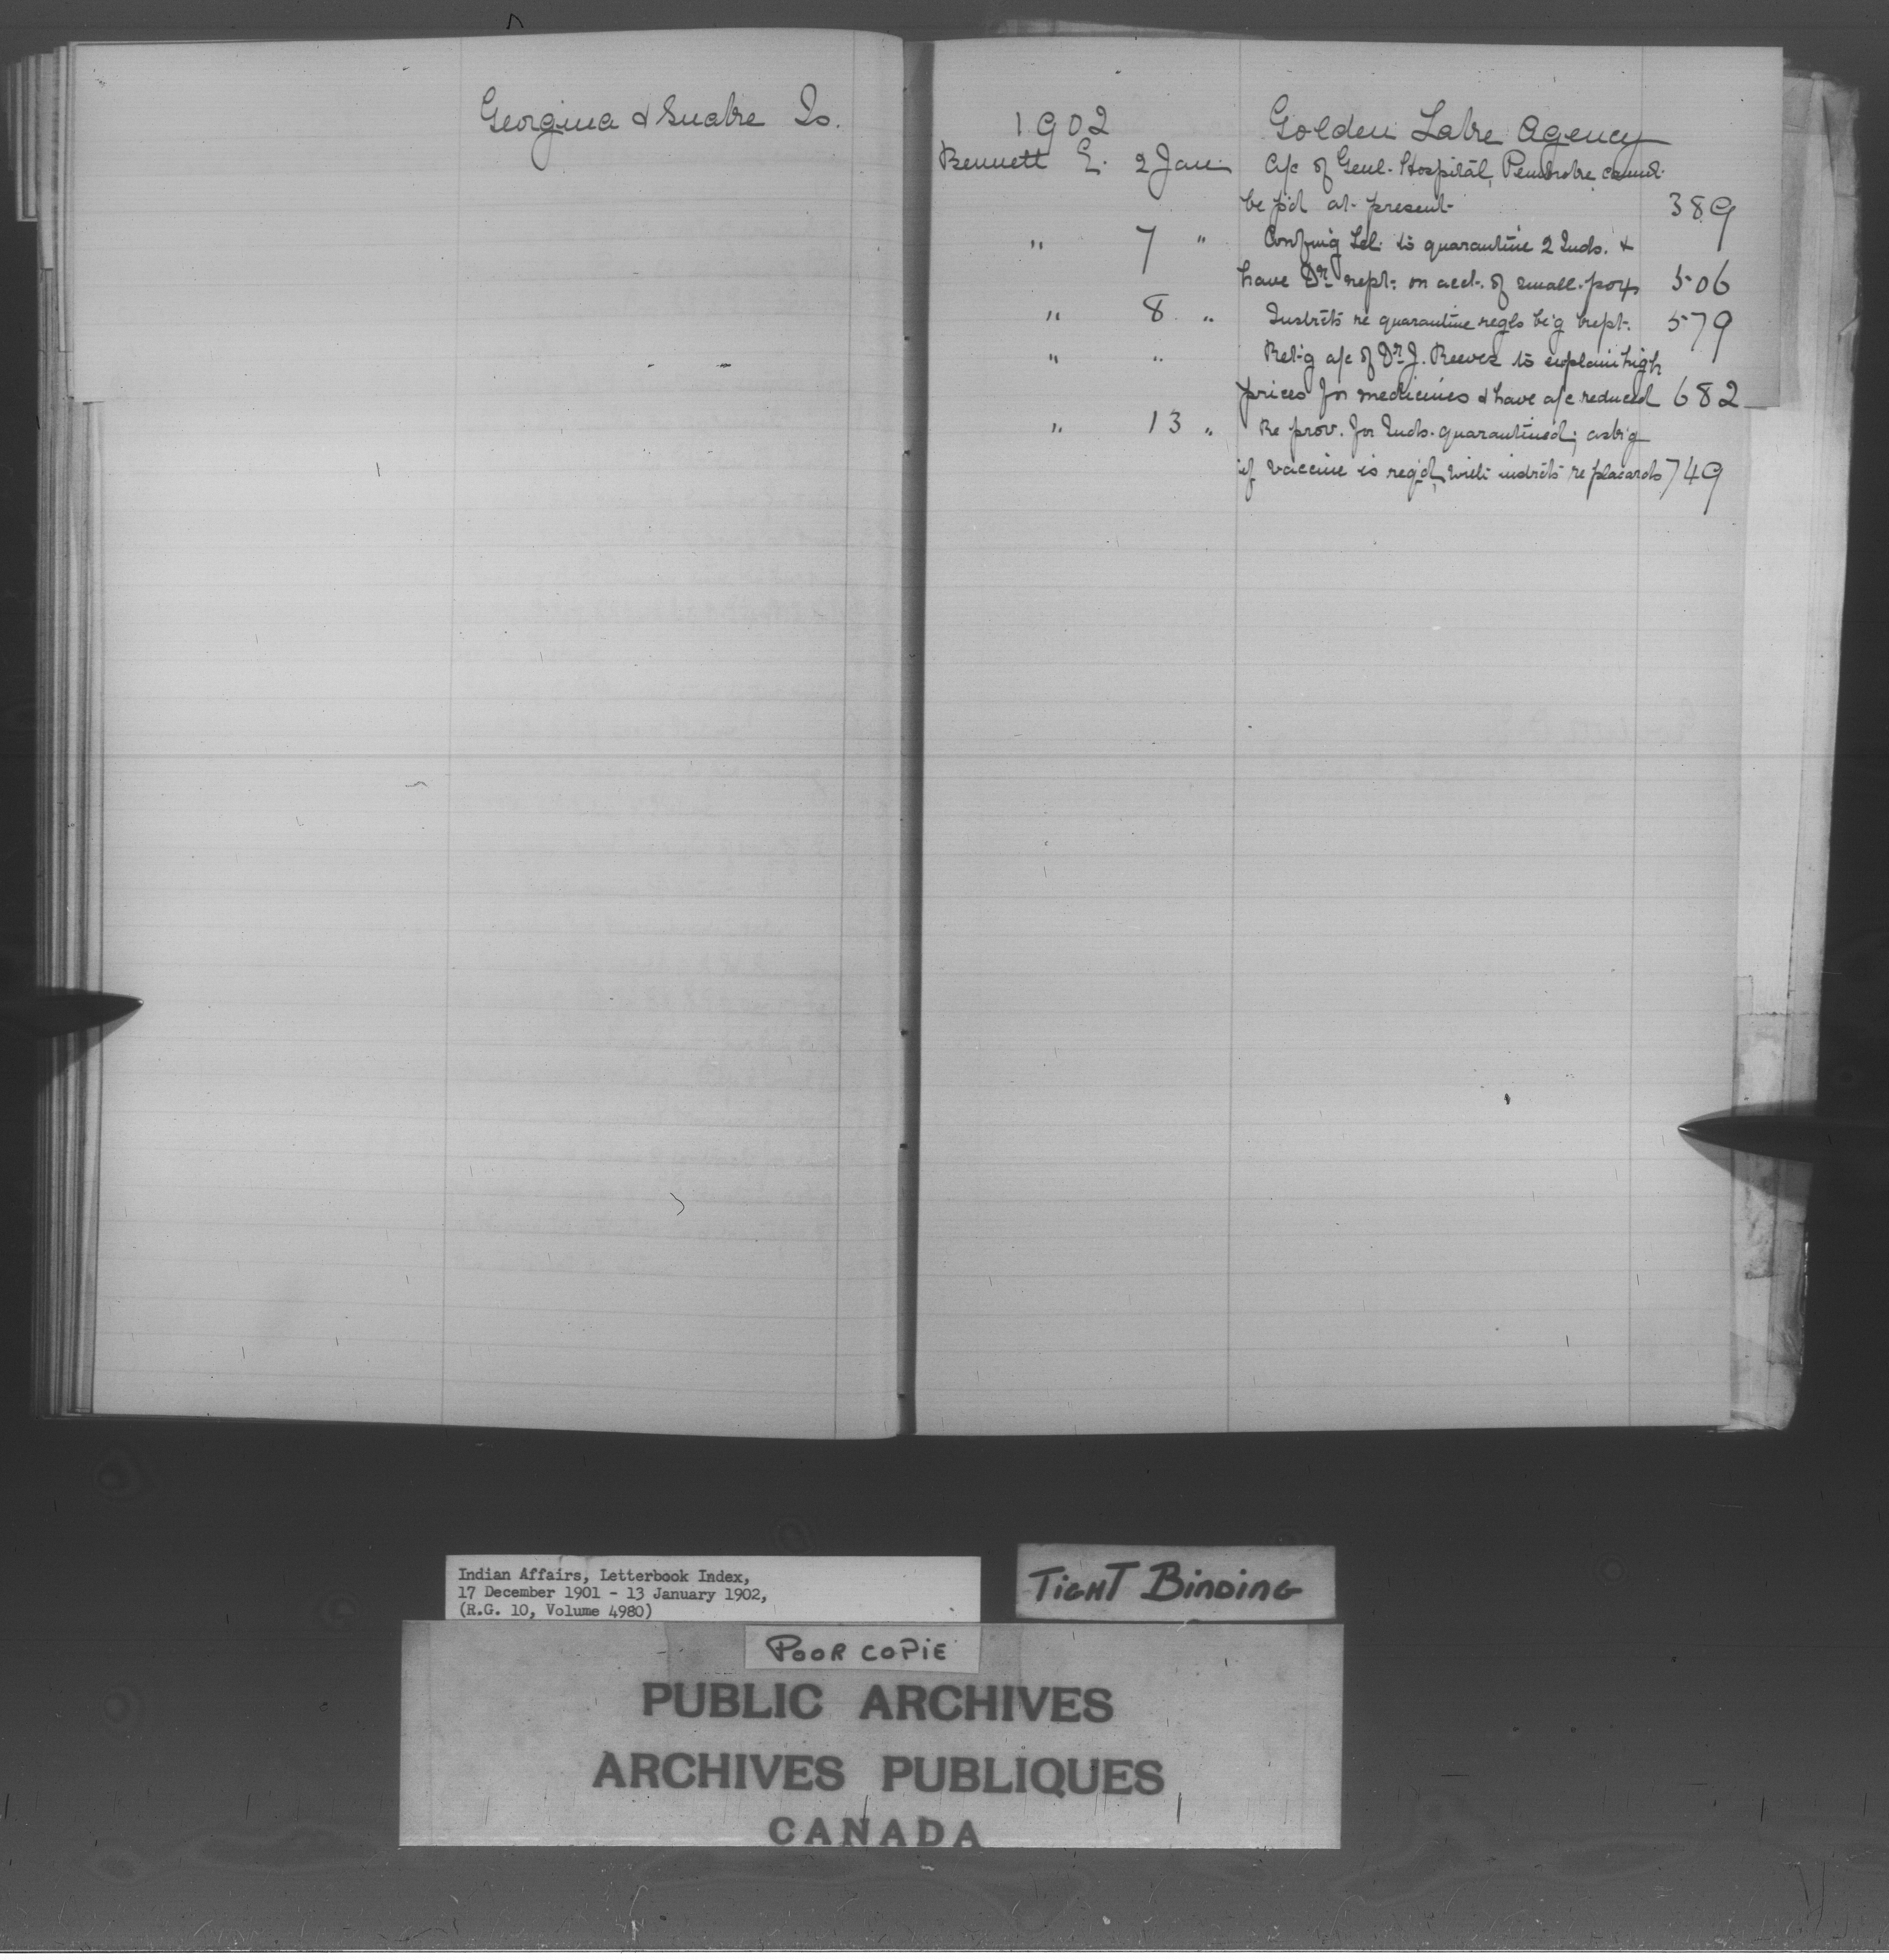 Georgina & Snake Is.
1902 Golden Lake Agency
Bennett E. 2 Jan. A/c of Genl. Hospital, Pembroke, cannot
be p'd at present 389
" 7 " Confm'g tel. to quarantine 2 Inds. &
have Dr. rept. on acct. of small-pox 506
" 8 " Instrcts re quarantine regls be'g kept. 579
" " Ret'g a/c of Dr. J. Reeves to explain high
prices for medicines & have a/c reduced 682
" 13 " Re prov. for Inds. quarantined; ask'g
if vaccine is req'd, with instrcts re placards 749
Indian Affairs, Letterbook Index,
17 December 1901 - 13 January 1902,
(R.G. 10, Volume 4980)
TIGHT BINDING
POOR COPIE
PUBLIC ARCHIVES
ARCHIVES PUBLIQUES
CANADA